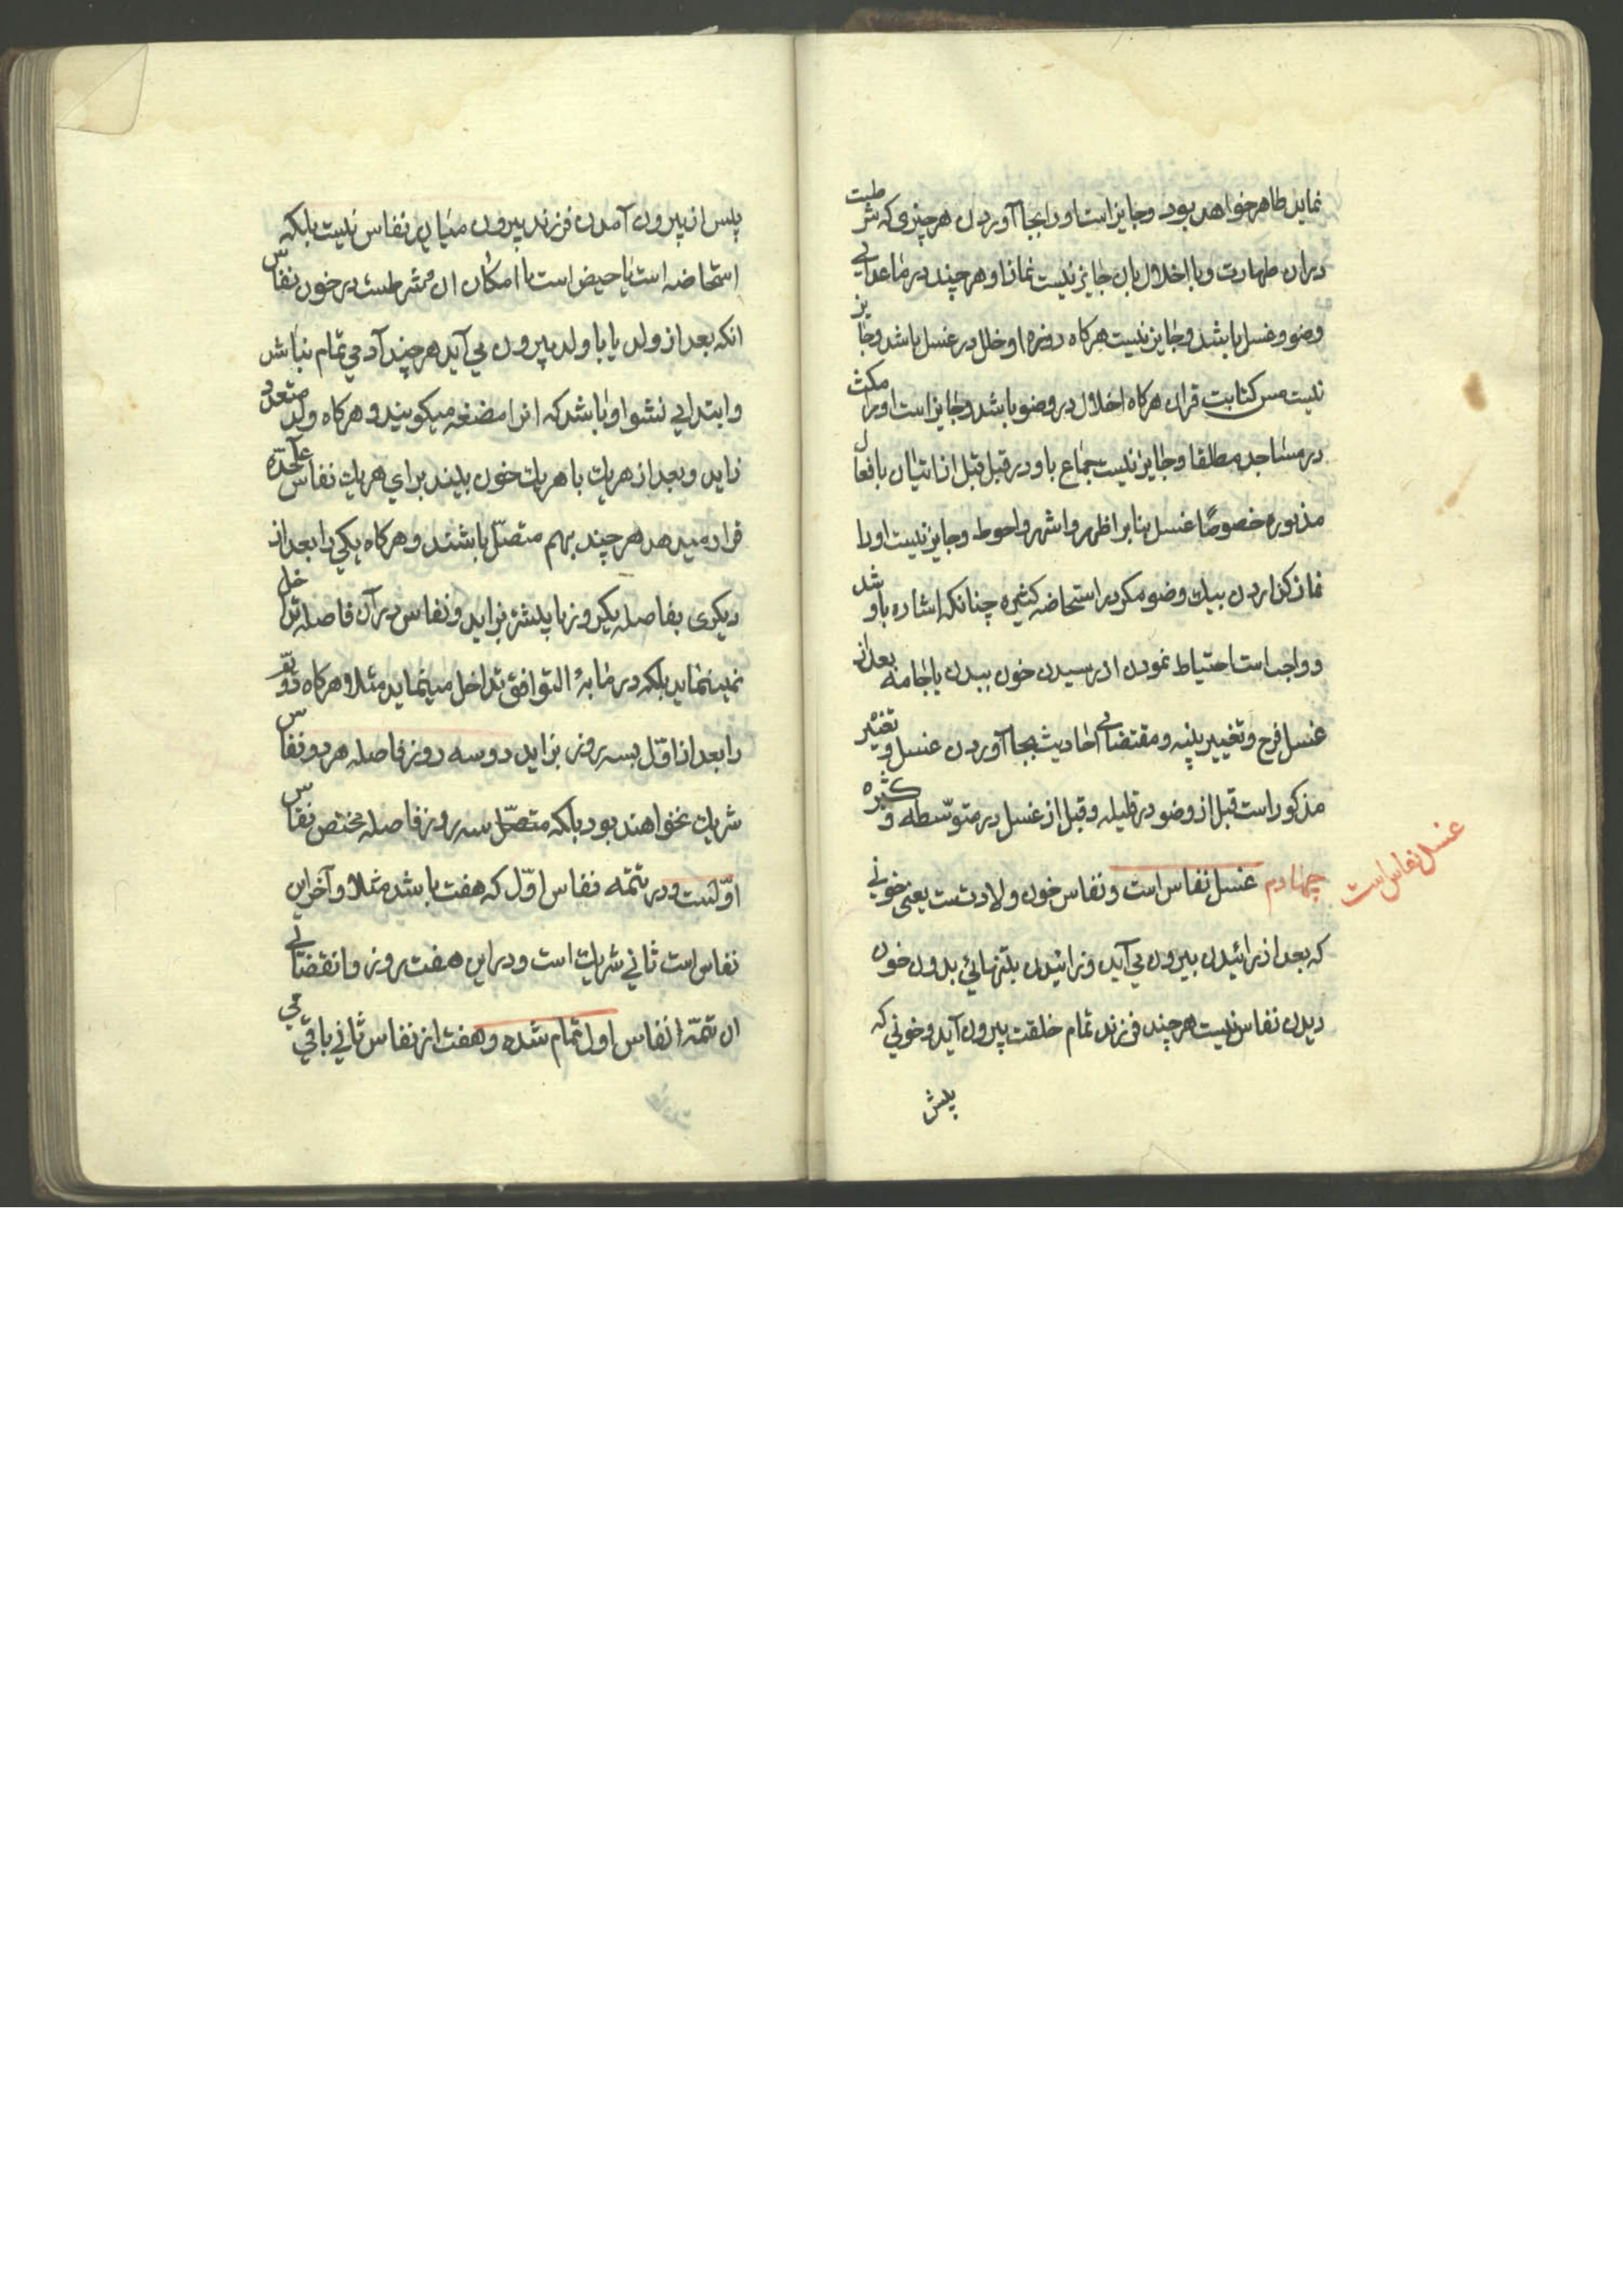 نماید طاهر خواهد بود و جایز است او را بجا آوردن هر چیزی که شرطست
در ان طهارت و با اخلال بان جایز نیست نماز او هر چند در ماعدای
وضو و غسل باشد و جایز نیست هرکاه روزه او خلل در غسل باشد و جایز
نیست مس کتابت قران هرکاه اخلال در وضو باشد و جایز است او را مکث
در مساجد مطلقا و جایز نیست جماع با او در قبل قبل از اتیان بافعال
مذبوره خصوصًا غسل بنا بر اظهر و اشهر و احوط و جایز نیست او را
نماز کزاردن بیك وضو مکر در استحاضه کثیره چنانکه اشاره باو شد
و واجب است احتیاط نمودن از رسیدن خون ببدن یا جامه بعد از
غسل فرج و تغییر پنبه و مقتضای احادیث بجا آوردن غسل و تغییر
مذکور است قبل از وضو در قلیله و قبل از غسل در متوسّطه و کثیره
چهارم غسل نفاس است و نفاس خون ولادتست یعنی خونی
غسل نفاس است
که بعد از زائیدن بیرون می آید و زائیدن بتنهائی بدون خون
دیدن نفاس نیست هر چند فرزند تمام خلقت بیرون آید و خونی که
پیش
پیش از بیرون آمدن فرزند بیرون میاید نفاس نیست بلکه
استحاضه است یا حیض است با امکان ان و شرطست در خون نفاس
انکه بعد از ولد یا با ولد بیرون می آید هر چند آدمی تمام نباشد
و ابتدای نشو او باشد که انرا مضغه میکویند و هرکاه ولد متعدد
زاید و بعد از هریك یا هریك خون بیند برای هریك نفاس علیحده
قرار میدهد هر چند بهم متصّل باشند و هرکاه یکی را بعد از
دیکری بفاصله یکروز یا بیشتر بزاید و نفاس در آن فاصله تداخل
نمینماید بلکه در ما به التوافق تداخل مینماید مثلا و هرکاه دوّم
را بعد از اوّل بسه روز بزاید دو سه روز فاصله هر دو نفاس
شریك نخواهند بود بلکه متصّل سه روز فاصله مختص نفاس
اوّلست و در تتمّه نفاس اوّل که هفت باشد مثلا و آخر این
نفاس است ثانی شریك است و در این هفت روز و انقضای
ان تتمّه نفاس اول تمام شده و هفت از نفاس ثانی باقی